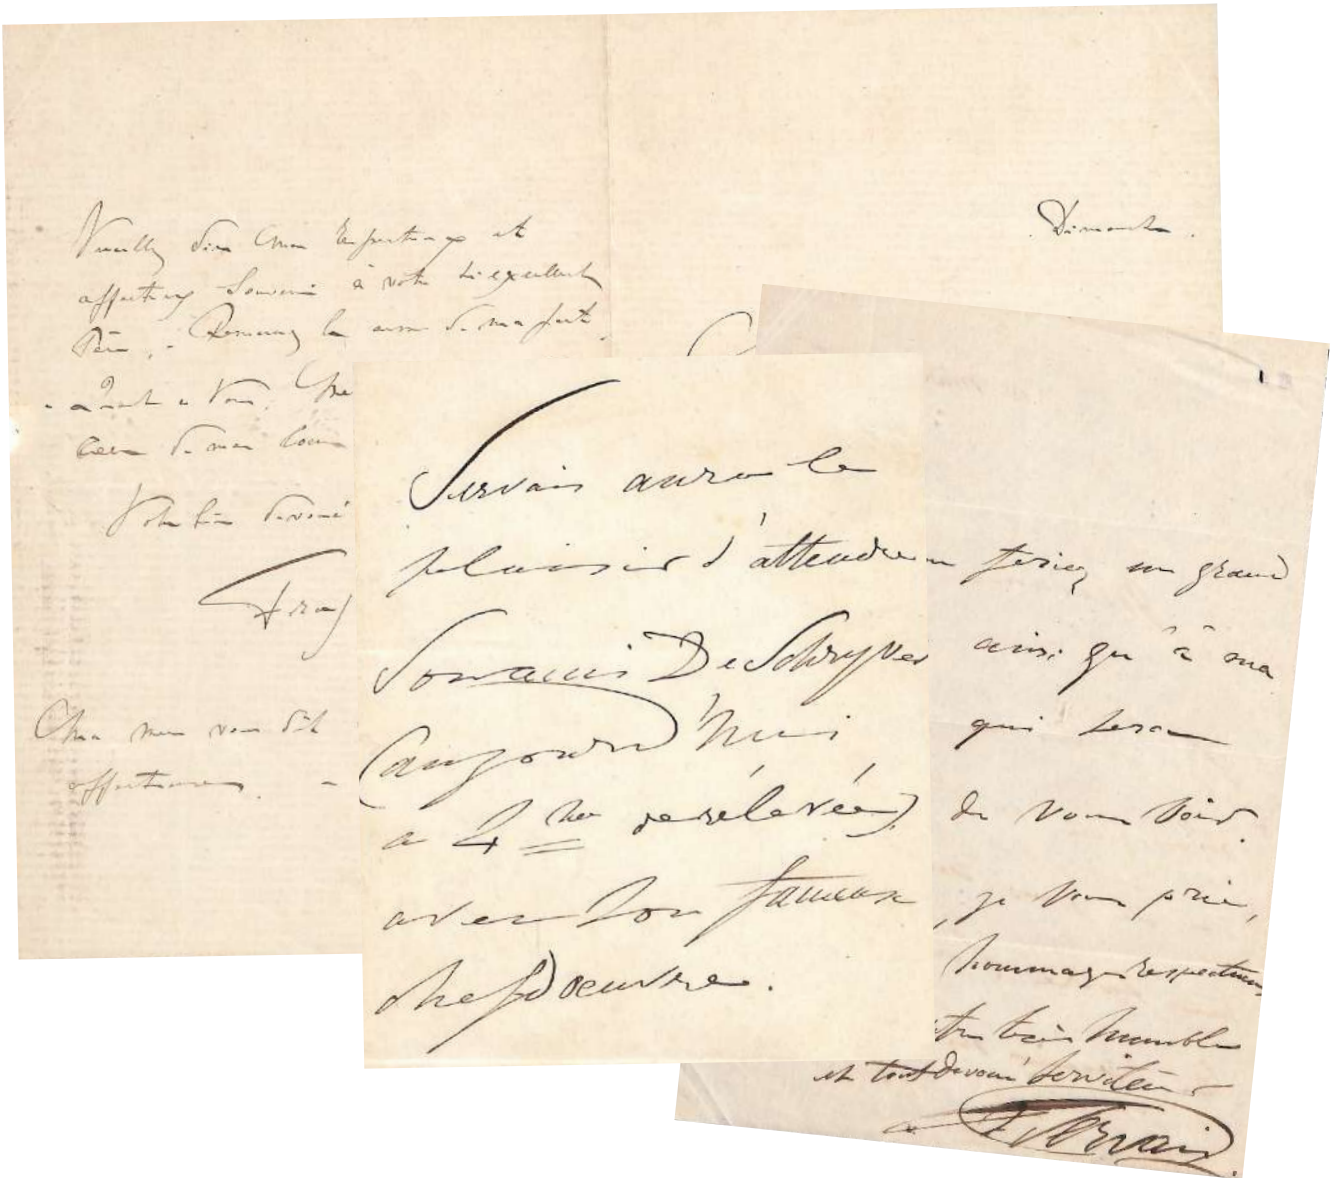 Veuillez dire mon respectueux et
affectueux Souvenir à votre si excellent
Père. - Remerciez le aussi de ma part
- Quant à Vous,
de mon
Votre bien dévoué
Franz
vous dit
affectueuses. -
Dimanche.
Servais aura le
plaisir d'attendre
Son ami De Schryver
(aujourd'hui
a 4 hes de rélevée)
avec Son fameux
chefd'oeuvre.
feriez un grand
ainsi qu'à ma
qui sera
de vous voir.
, je vous prie,
hommages respectueux
très humble
et tout dévoué Serviteur
Servais